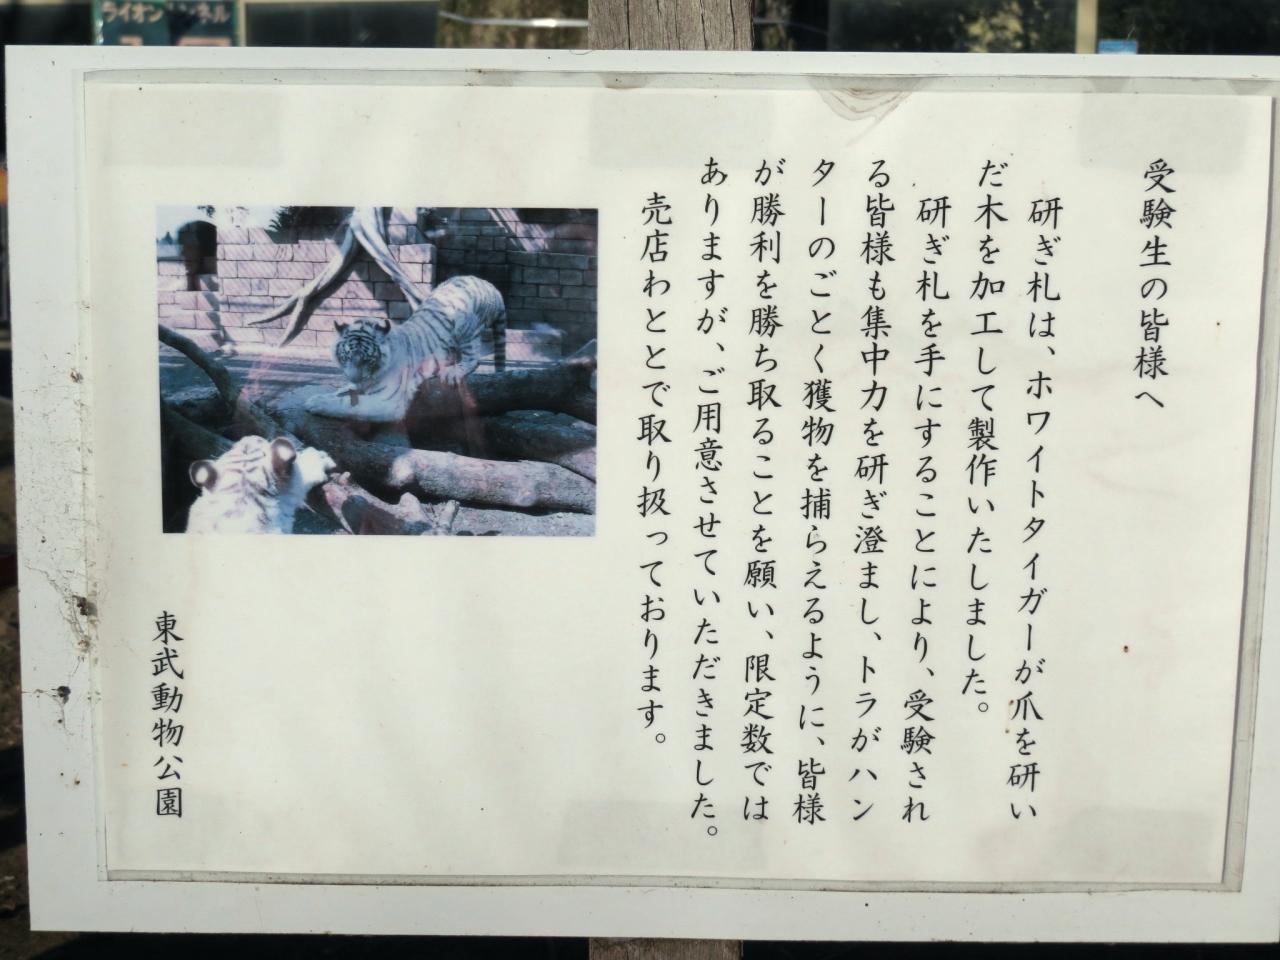 ライオントンネル
受験生の皆様へ
研ぎ札は、ホワイトタイガーが爪を研い
だ木を加工して製作いたしました。
研ぎ札を手にすることにより、受験され
る皆様も集中力を研ぎ澄まし、トラがハン
ターのごとく獲物を捕らえるように、皆様
が勝利を勝ち取ることを願い、限定数では
ありますが、ご用意させていただきました。
売店わととで取り扱っております。
東武動物公園